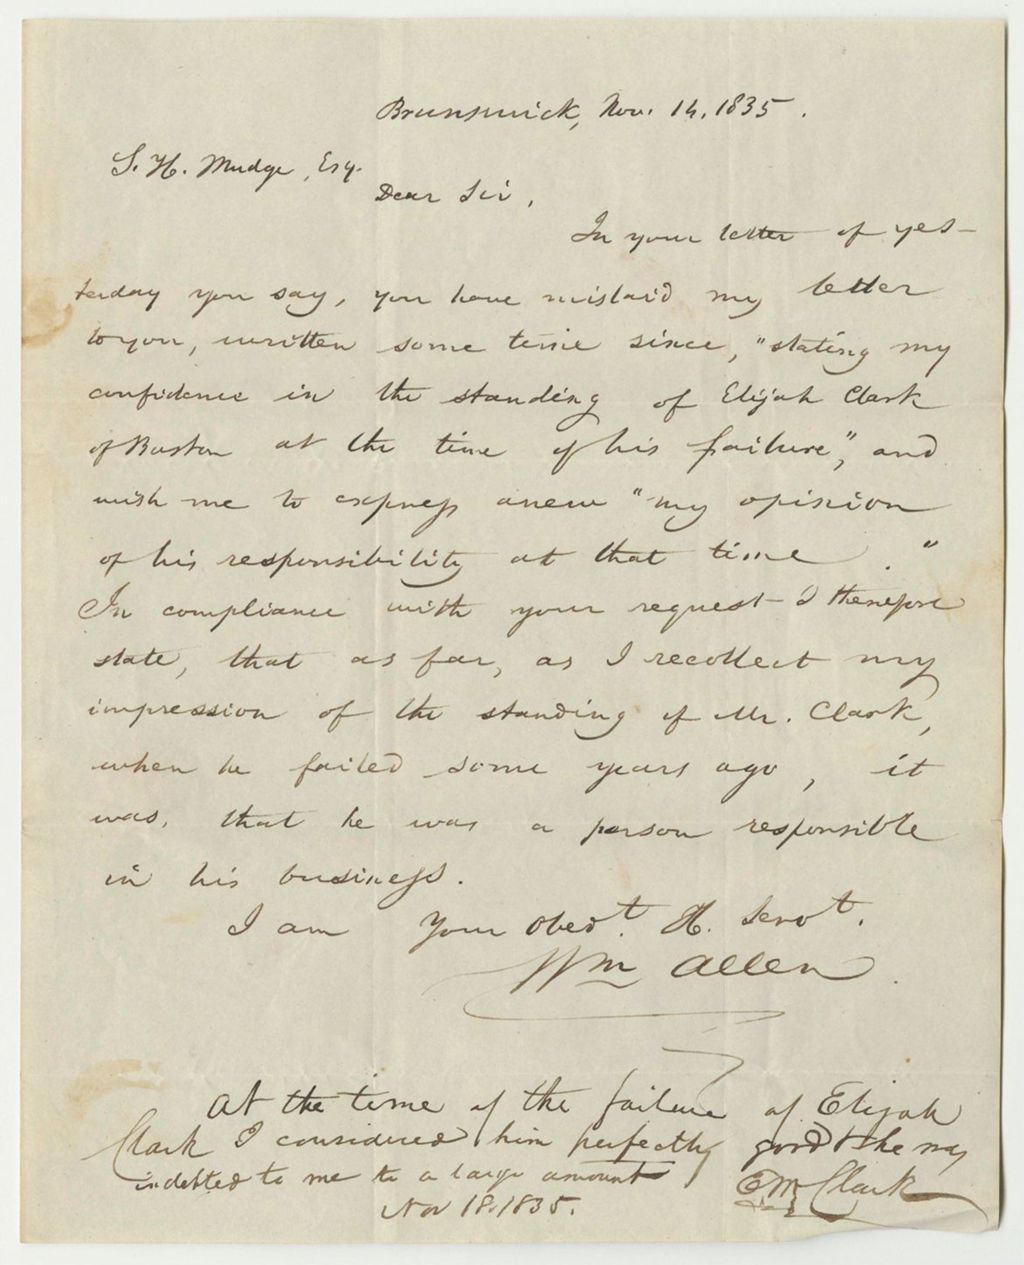 Brunswick, Nov. 14, 1835.
S. H. Mudge, Esq.
Dear Sir,
In your letter of yes-
terday you say, you have mislaid my letter
to you, written some time since, "stating my
confidence in the standing of Elijah Clark
of Boston at the time of his failure", and
wish me to express anew "my opinion
of his responsibility at that time."
In compliance with your request I therefore
state, that as far, as I recollect my
impression of the standing of Mr. Clark,
when he failed some years ago, it
was, that he was a person responsible
in his business.
I am your obedt. H. Servt.
Wm Allen.
At the time of the failure of Elijah
Clark I considered him perfectly good & he was
indebted to me to a large amount
Clark
Nov 18. 1835.